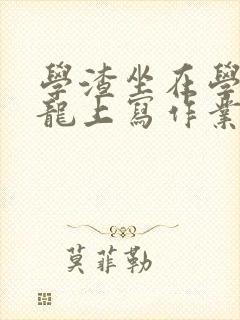 學渣坐在學
龍上寫作業
莫菲勒